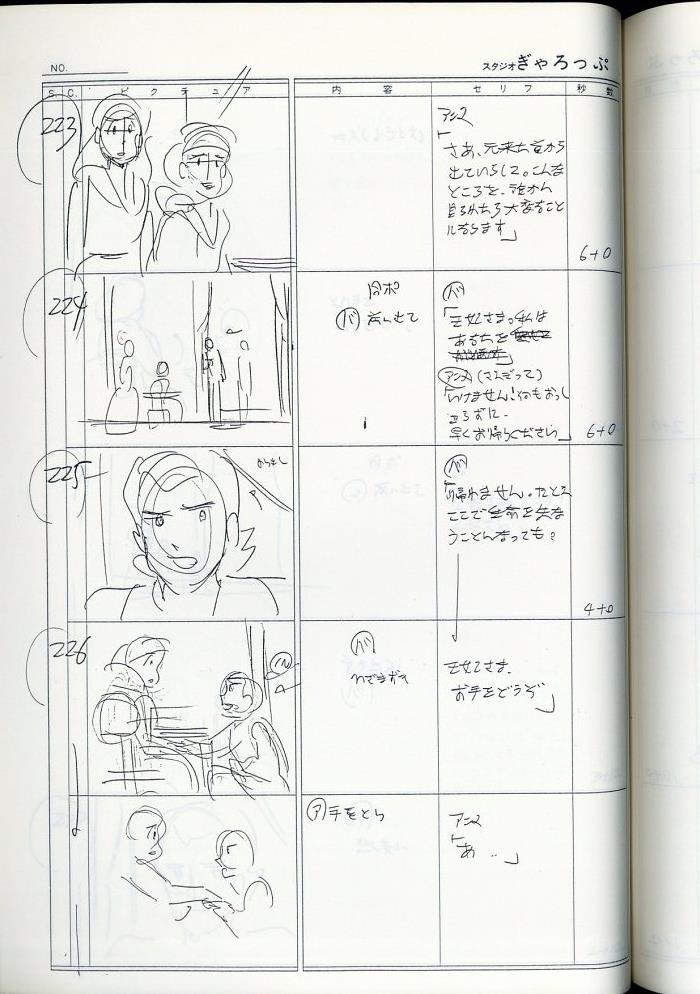 NO.
スタジオぎゃろっぷ
S. C. ピクチュア 内容 セリフ 秒数
223
アンヌ
「さあ、元来た道から
出ていらして。こんな
ところを、誰かに
見られたら大変なこと
になります」
6+0
224
(バ)
「王妃さま。私は
あなたを
(アンヌ)(さえぎって)
「いけません!何もおっし
ゃらずに、
早くお帰りください」
6+0
225
(バ)
「帰れません。たとえ
ここで生命を失な
うことになっても?
4+0
226
(バ)
ひざまずく
王妃さま、
お手をどうぞ」
(ア)手をとら
アンヌ
「あ‥」